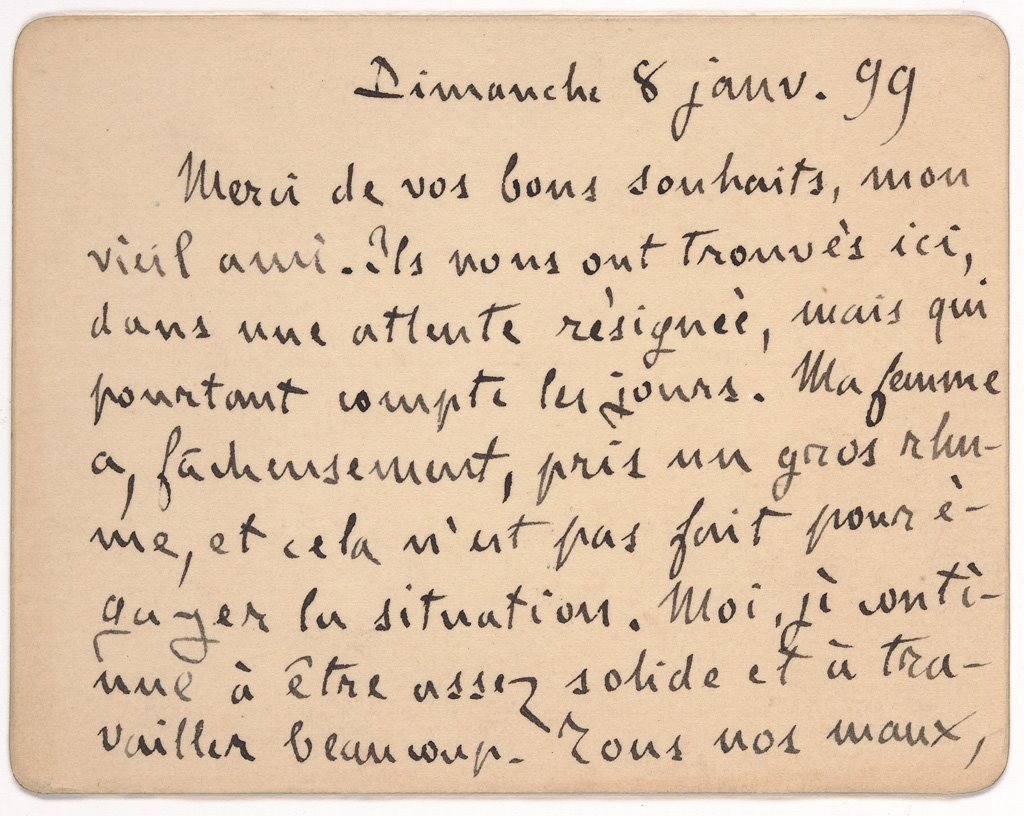 Dimanche 8 janv. 99
Merci de vos bons souhaits, mon
vieil ami. Ils nous ont trouvés ici,
dans une attente résignée, mais qui
pourtant compte les jours. Ma femme
a, fâcheusement, pris un gros rhu-
me, et cela n'est pas fait pour é-
gayer la situation. Moi, je conti-
nue à être assez solide et à tra-
vailler beaucoup. Tous nos maux,